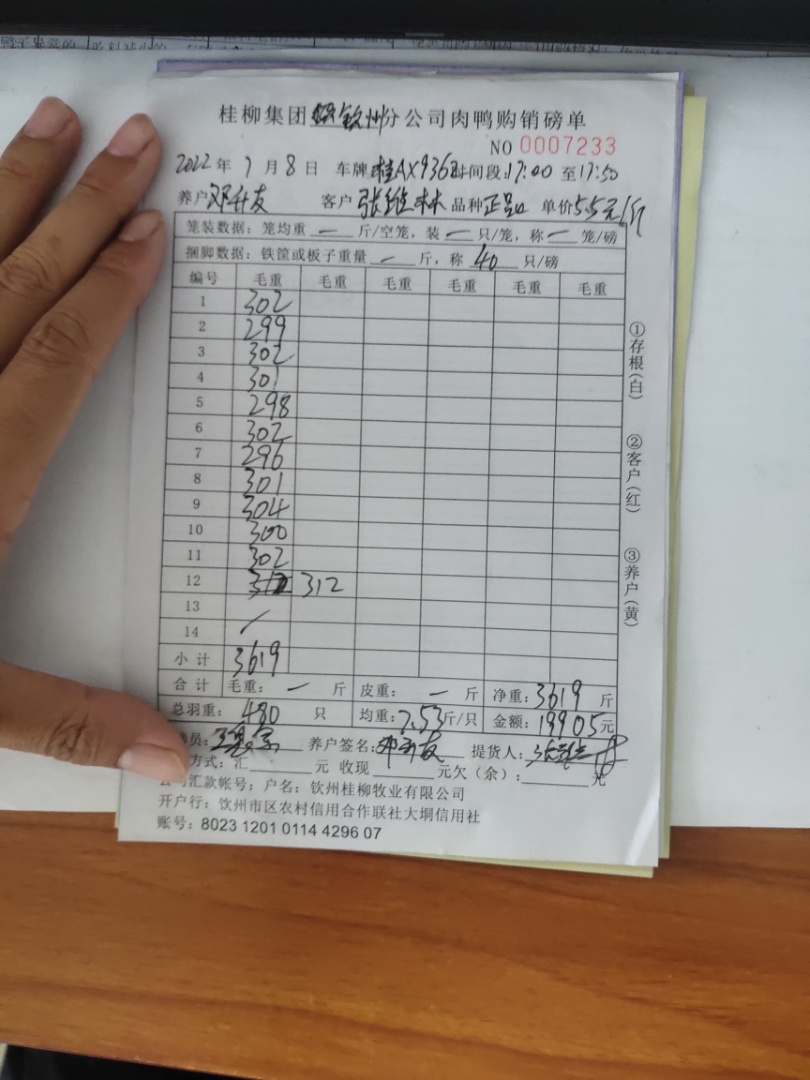 桂柳集团钦州分公司肉鸭购销磅单
NO 0007233
2022年7月8日 车牌桂AX936 时间段:17:00至17:50
养户邓升友 客户张维林 品种正品 单价5.5元/斤
笼装数据:笼均重 — 斤/空笼,装 — 只/笼,称 — 笼/磅
捆脚数据:铁筐或板子重量 — 斤,称 40 只/磅
编号 毛重 毛重 毛重 毛重 毛重 毛重
1 302
2 299
3 302
4 301
5 298
6 302
7 296
8 301
9 304
10 300
11 302
12 312
13
14 /
小计 3619
合计 毛重: — 斤 皮重: — 斤 净重:3619 斤
总羽重: 480 只 均重:7.53斤/只 金额:19905元
员: 养户签名: 提货人:
方式:汇 元 收现 元欠(余): 元
公司汇款帐号:户名:钦州桂柳牧业有限公司
开户行:钦州市区农村信用合作联社大垌信用社
账号:8023 1201 0114 4296 07
①存根(白)
②客户(红)
③养户(黄)